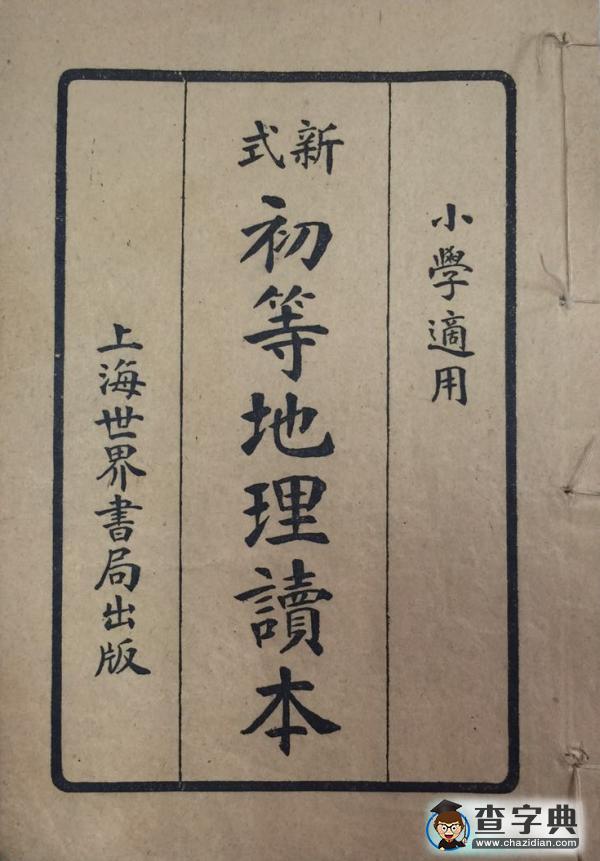 小學適用
新式
初等地理讀本
上海世界書局出版
查字典
www.chazidian.com